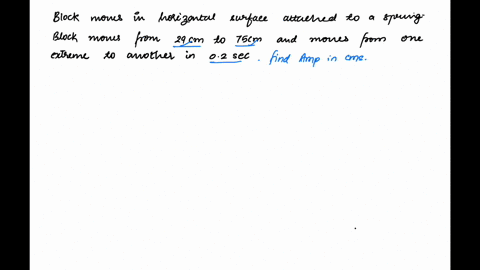 Block moves in horizontal surface attached to a spring.
Block moves from 29 cm to 75cm and moves from one
extreme to another in 0.2 sec. find Amp in cms.